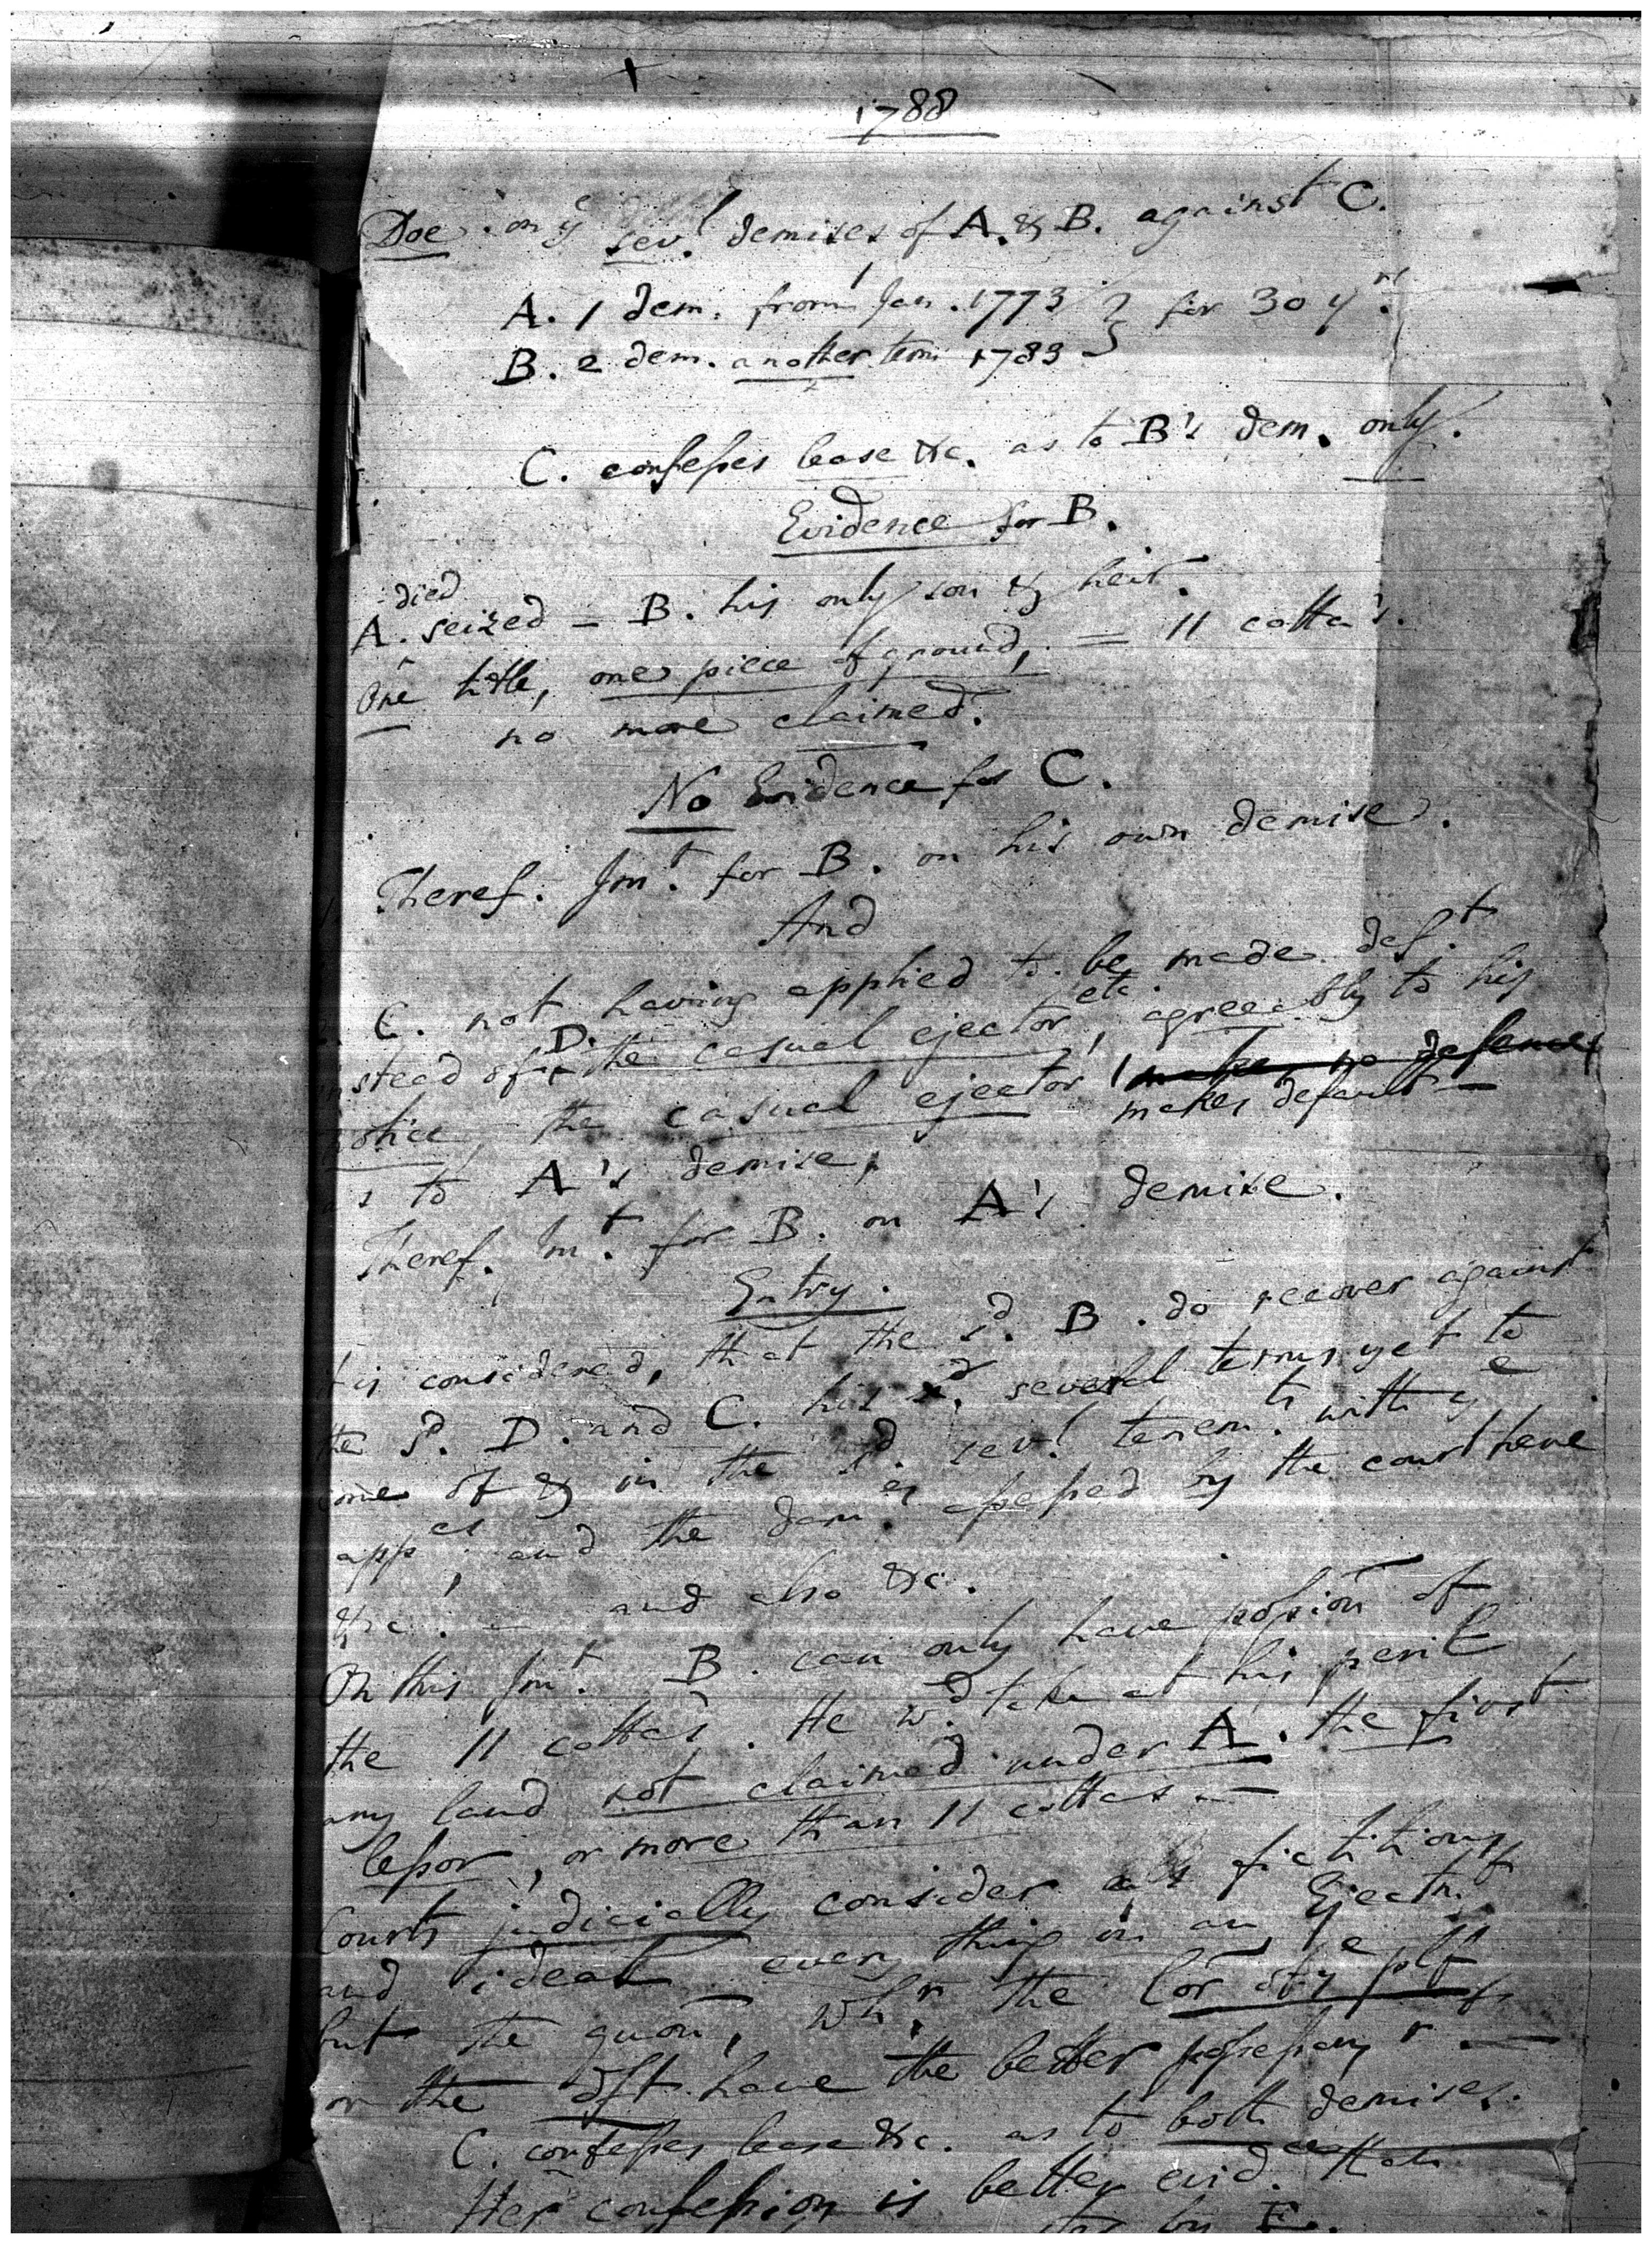 1788
Doe on ye sevl. demises of A. & B. against C.
A. 1 dem. from 1 Jan. 1773 } for 30 yrs.
B. 2 dem. another term 1783 }
C. confesses lease &c. as to B's dem. only.
Evidence for B.
died
A. seized — B. his only son & heir.
One title, one piece of ground, = 11 cotta's.
no more claimed.
No Evidence for C.
Theref. Jmt. for B. on his own demise.
And
C. not having applied to be made deft.
instead of D. the casual ejector etc., agreeably to his
notice, the casual ejector, makes no defence
makes default —
as to A's demise,
Theref. Jmt. for B. on A's demise.
Entry.
It is considered, that the sd. B. do recover against
the sd. D. and C. his sd. several terms yet to
come of & in the sd. sevl. tenemts. with ye
appes. and the dames. assessed by the court here
&c. — and also &c.
On this Jmt. B. can only have possion of
the 11 cottas. He wd. take at his peril
any land not claimed under A. the first
lessor, or more than 11 cottas —
Courts judicially consider as fictitious
and ideal every thing in an Ejectmt.
but the quon, whr. the lor of ye pltf
or the dft have the better possessary r. —
C. confesses lease &c. as to both demises.
Her confession is better evid. than
by E.